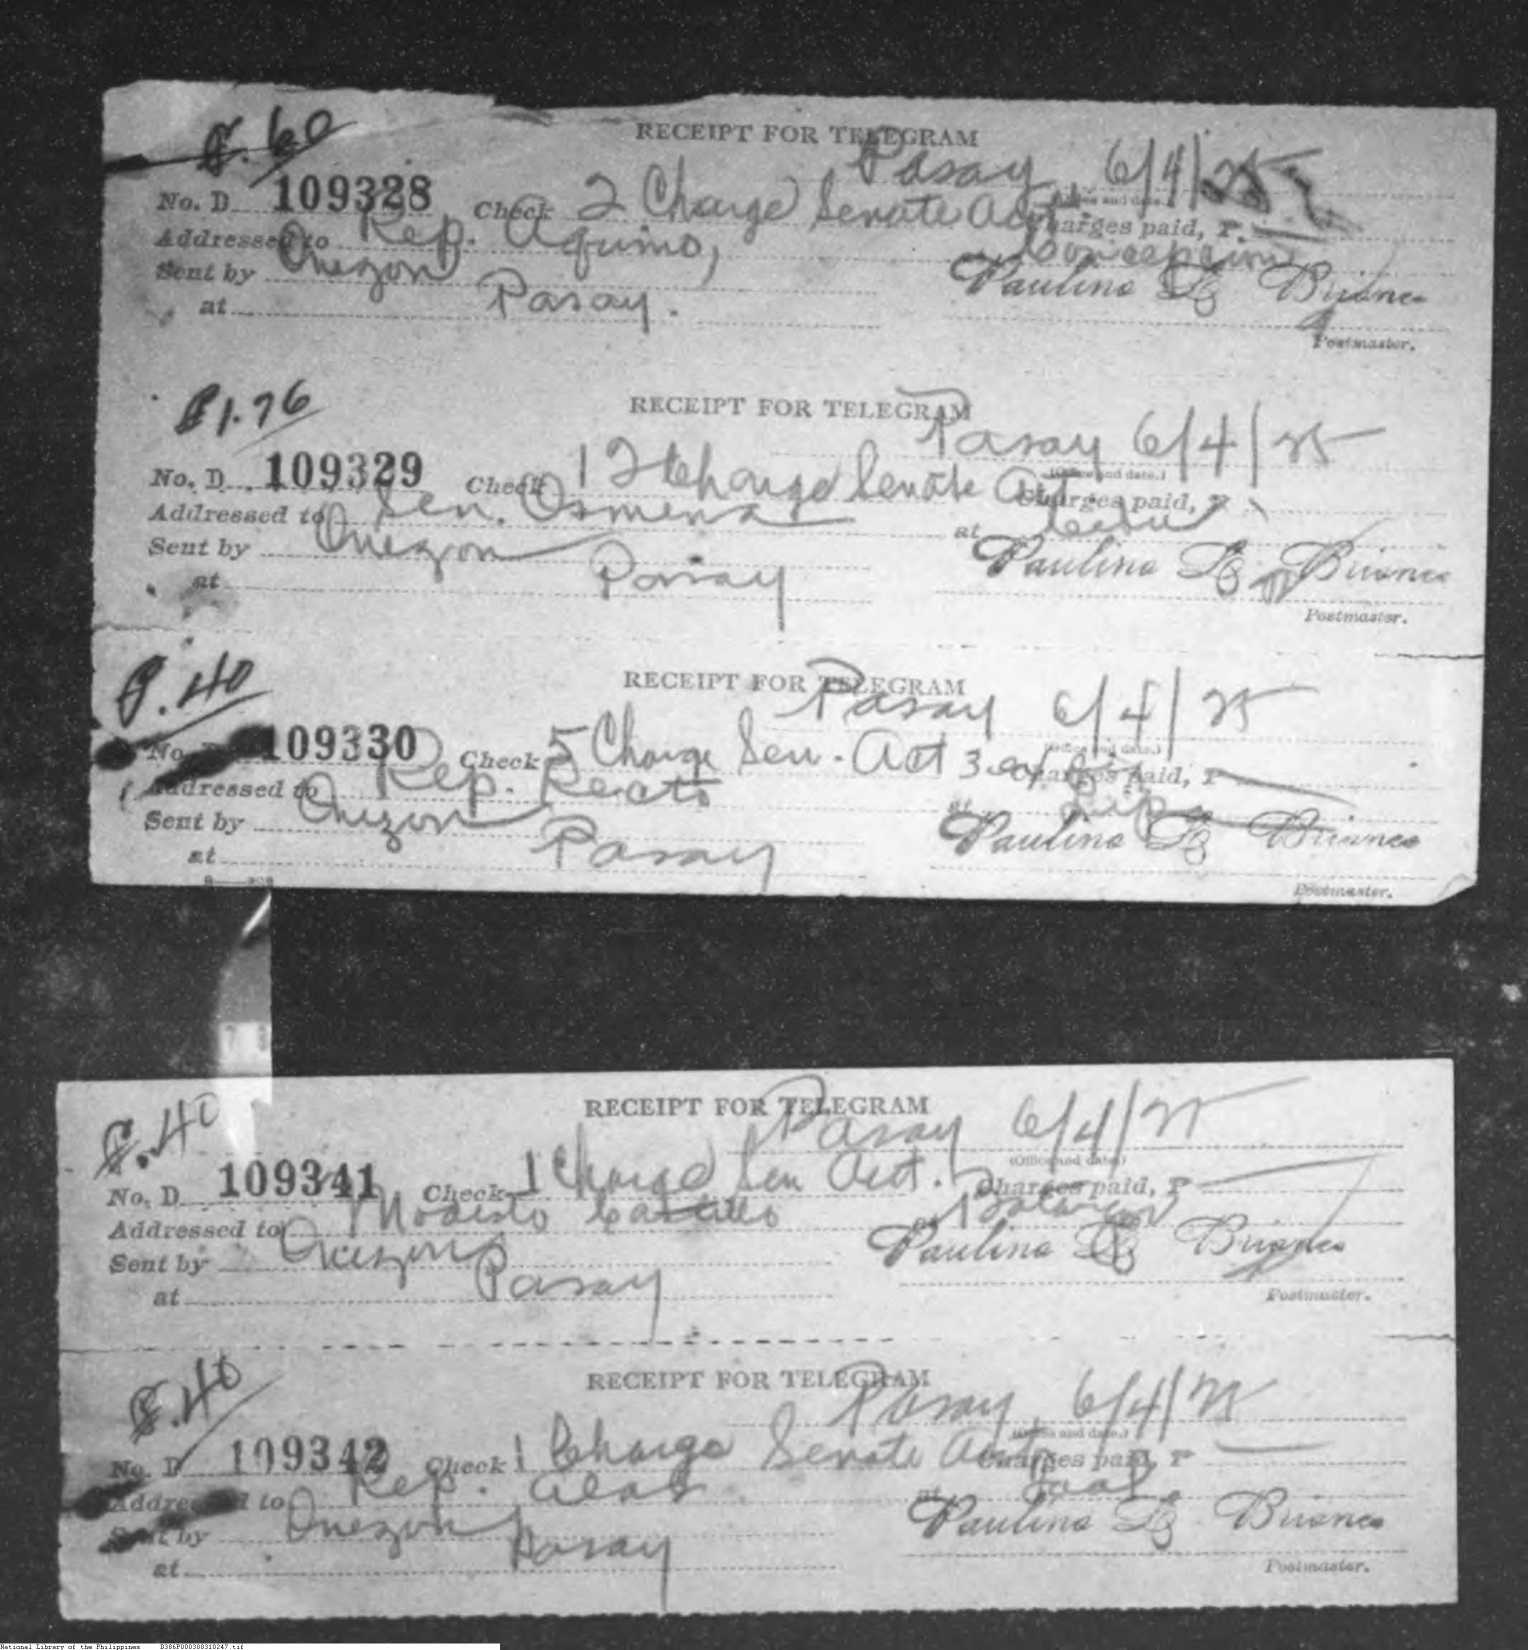 ₱.60
RECEIPT FOR TELEGRAM
Pasay, 6/4/25
No. D 109328 Check 2 Charge Senate Acct. Charges paid, P.
Addressed to Rep. Aquino, Concepcion
Sent by Quezon Paulino
at Pasay.
Postmaster.
₱1.76
RECEIPT FOR TELEGRAM
Pasay 6/4/25
(Office and date.)
No. D 109329 Check 12 Charge Senate Act. Charges paid, P
Addressed to Sen. Osmena at Cebu
Sent by Quezon Paulino
at Pasay
Postmaster.
₱.40
RECEIPT FOR TELEGRAM
Pasay 6/4/25
(Office and date.)
No. D 109330 Check 5 Charge Sen. Act Charges paid, P
Addressed to Rep. Recto at Lipa
Sent by Quezon Paulino
at Pasay
Postmaster.
₱.40
RECEIPT FOR TELEGRAM
Pasay 6/4/25
(Office and date.)
No. D 109341 Check 1 Charge Sen Acct. Charges paid, P
Addressed to Modesto Castillo at
Sent by Quezon Paulino
at Pasay
Postmaster.
₱.40
RECEIPT FOR TELEGRAM
Pasay, 6/4/25
(Office and date.)
No. D 109342 Check 1 Charge Senate Acct Charges paid, P
Addressed to Rep. Alas at Taal.
Sent by Quezon Paulino
at Pasay
Postmaster.
National Library of the Philippines B386P000300310247.tif